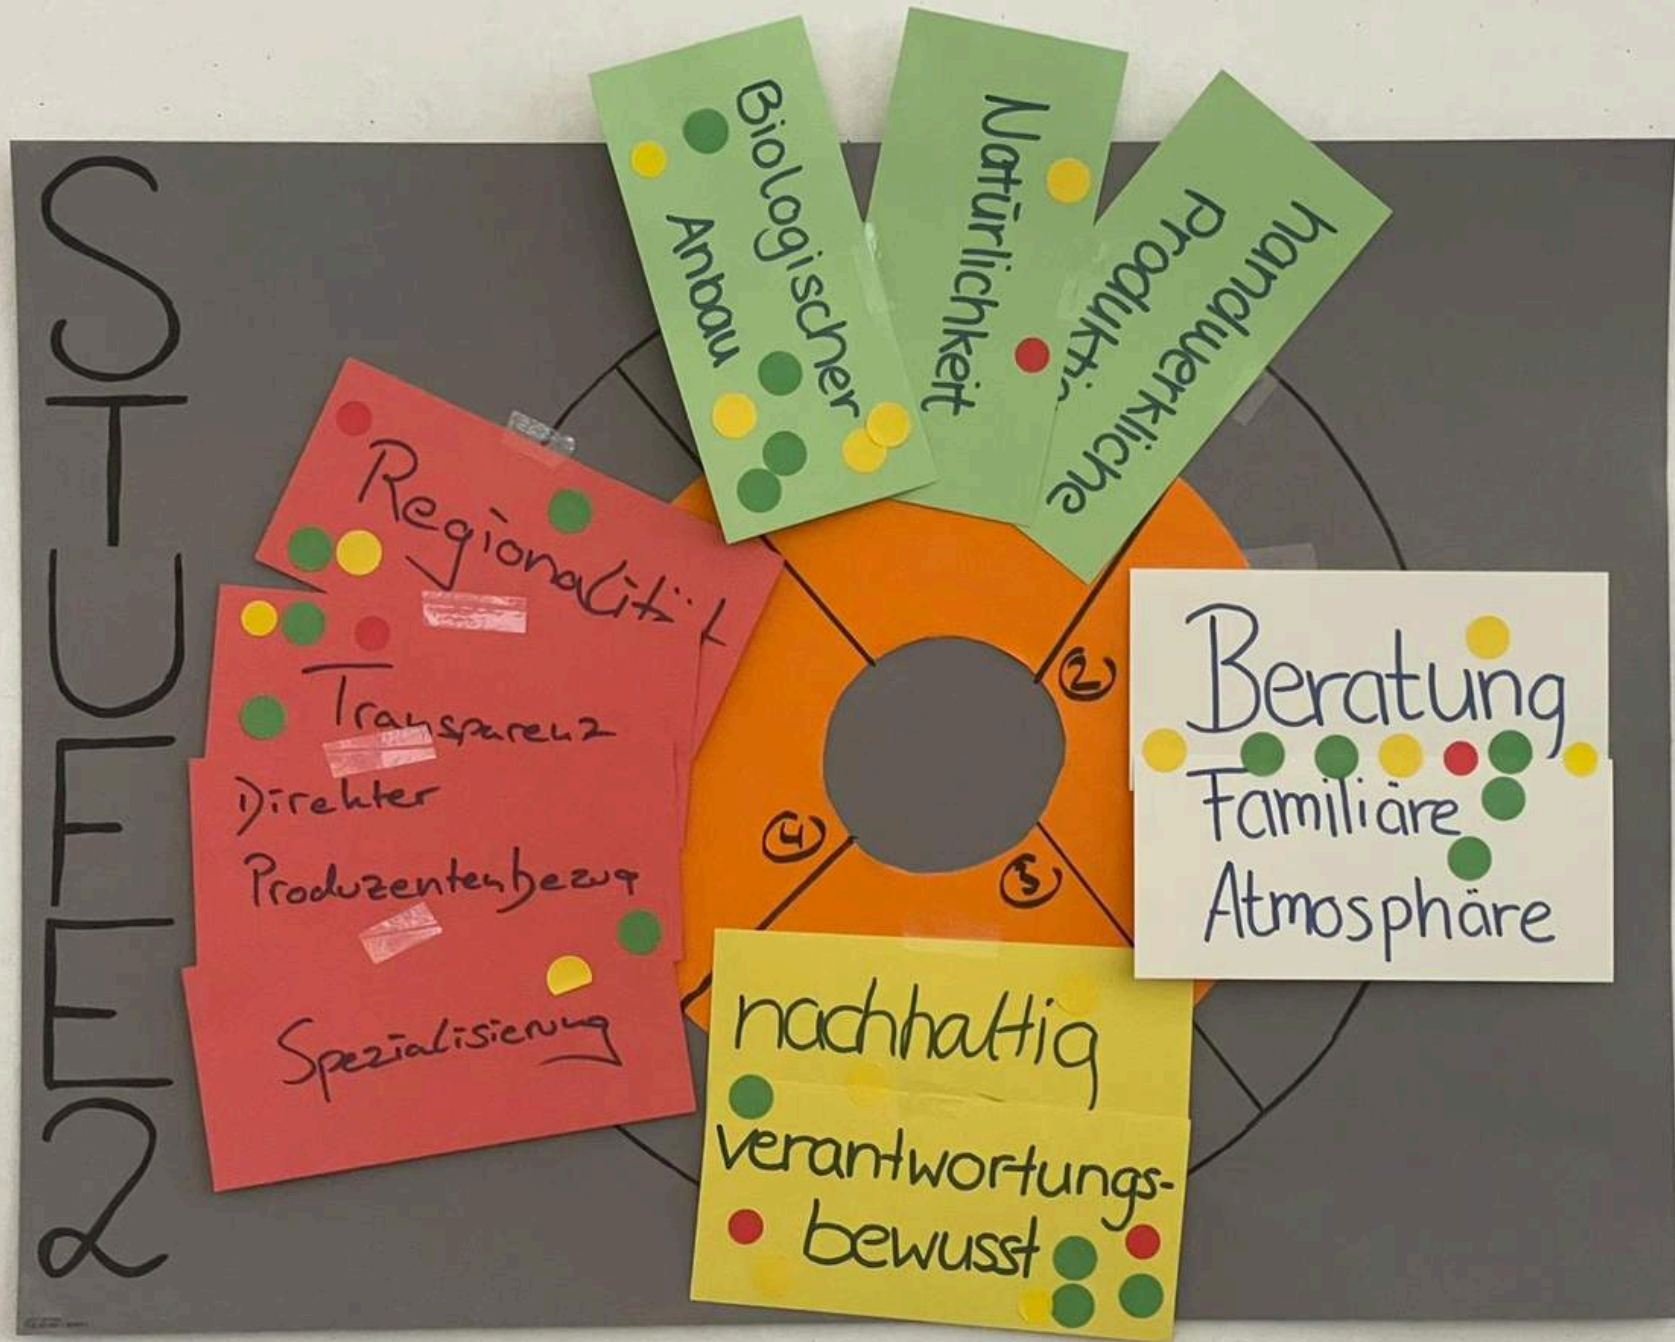 STUFE 2
Biologischer
Anbau
Natürlichkeit
handwerkliche
Produktio
Regionalität
Transparenz
Direkter
Produzentenbezug
Spezialisierung
②
③
④
Beratung
Familiäre
Atmosphäre
nachhaltig
verantwortungs-
bewusst